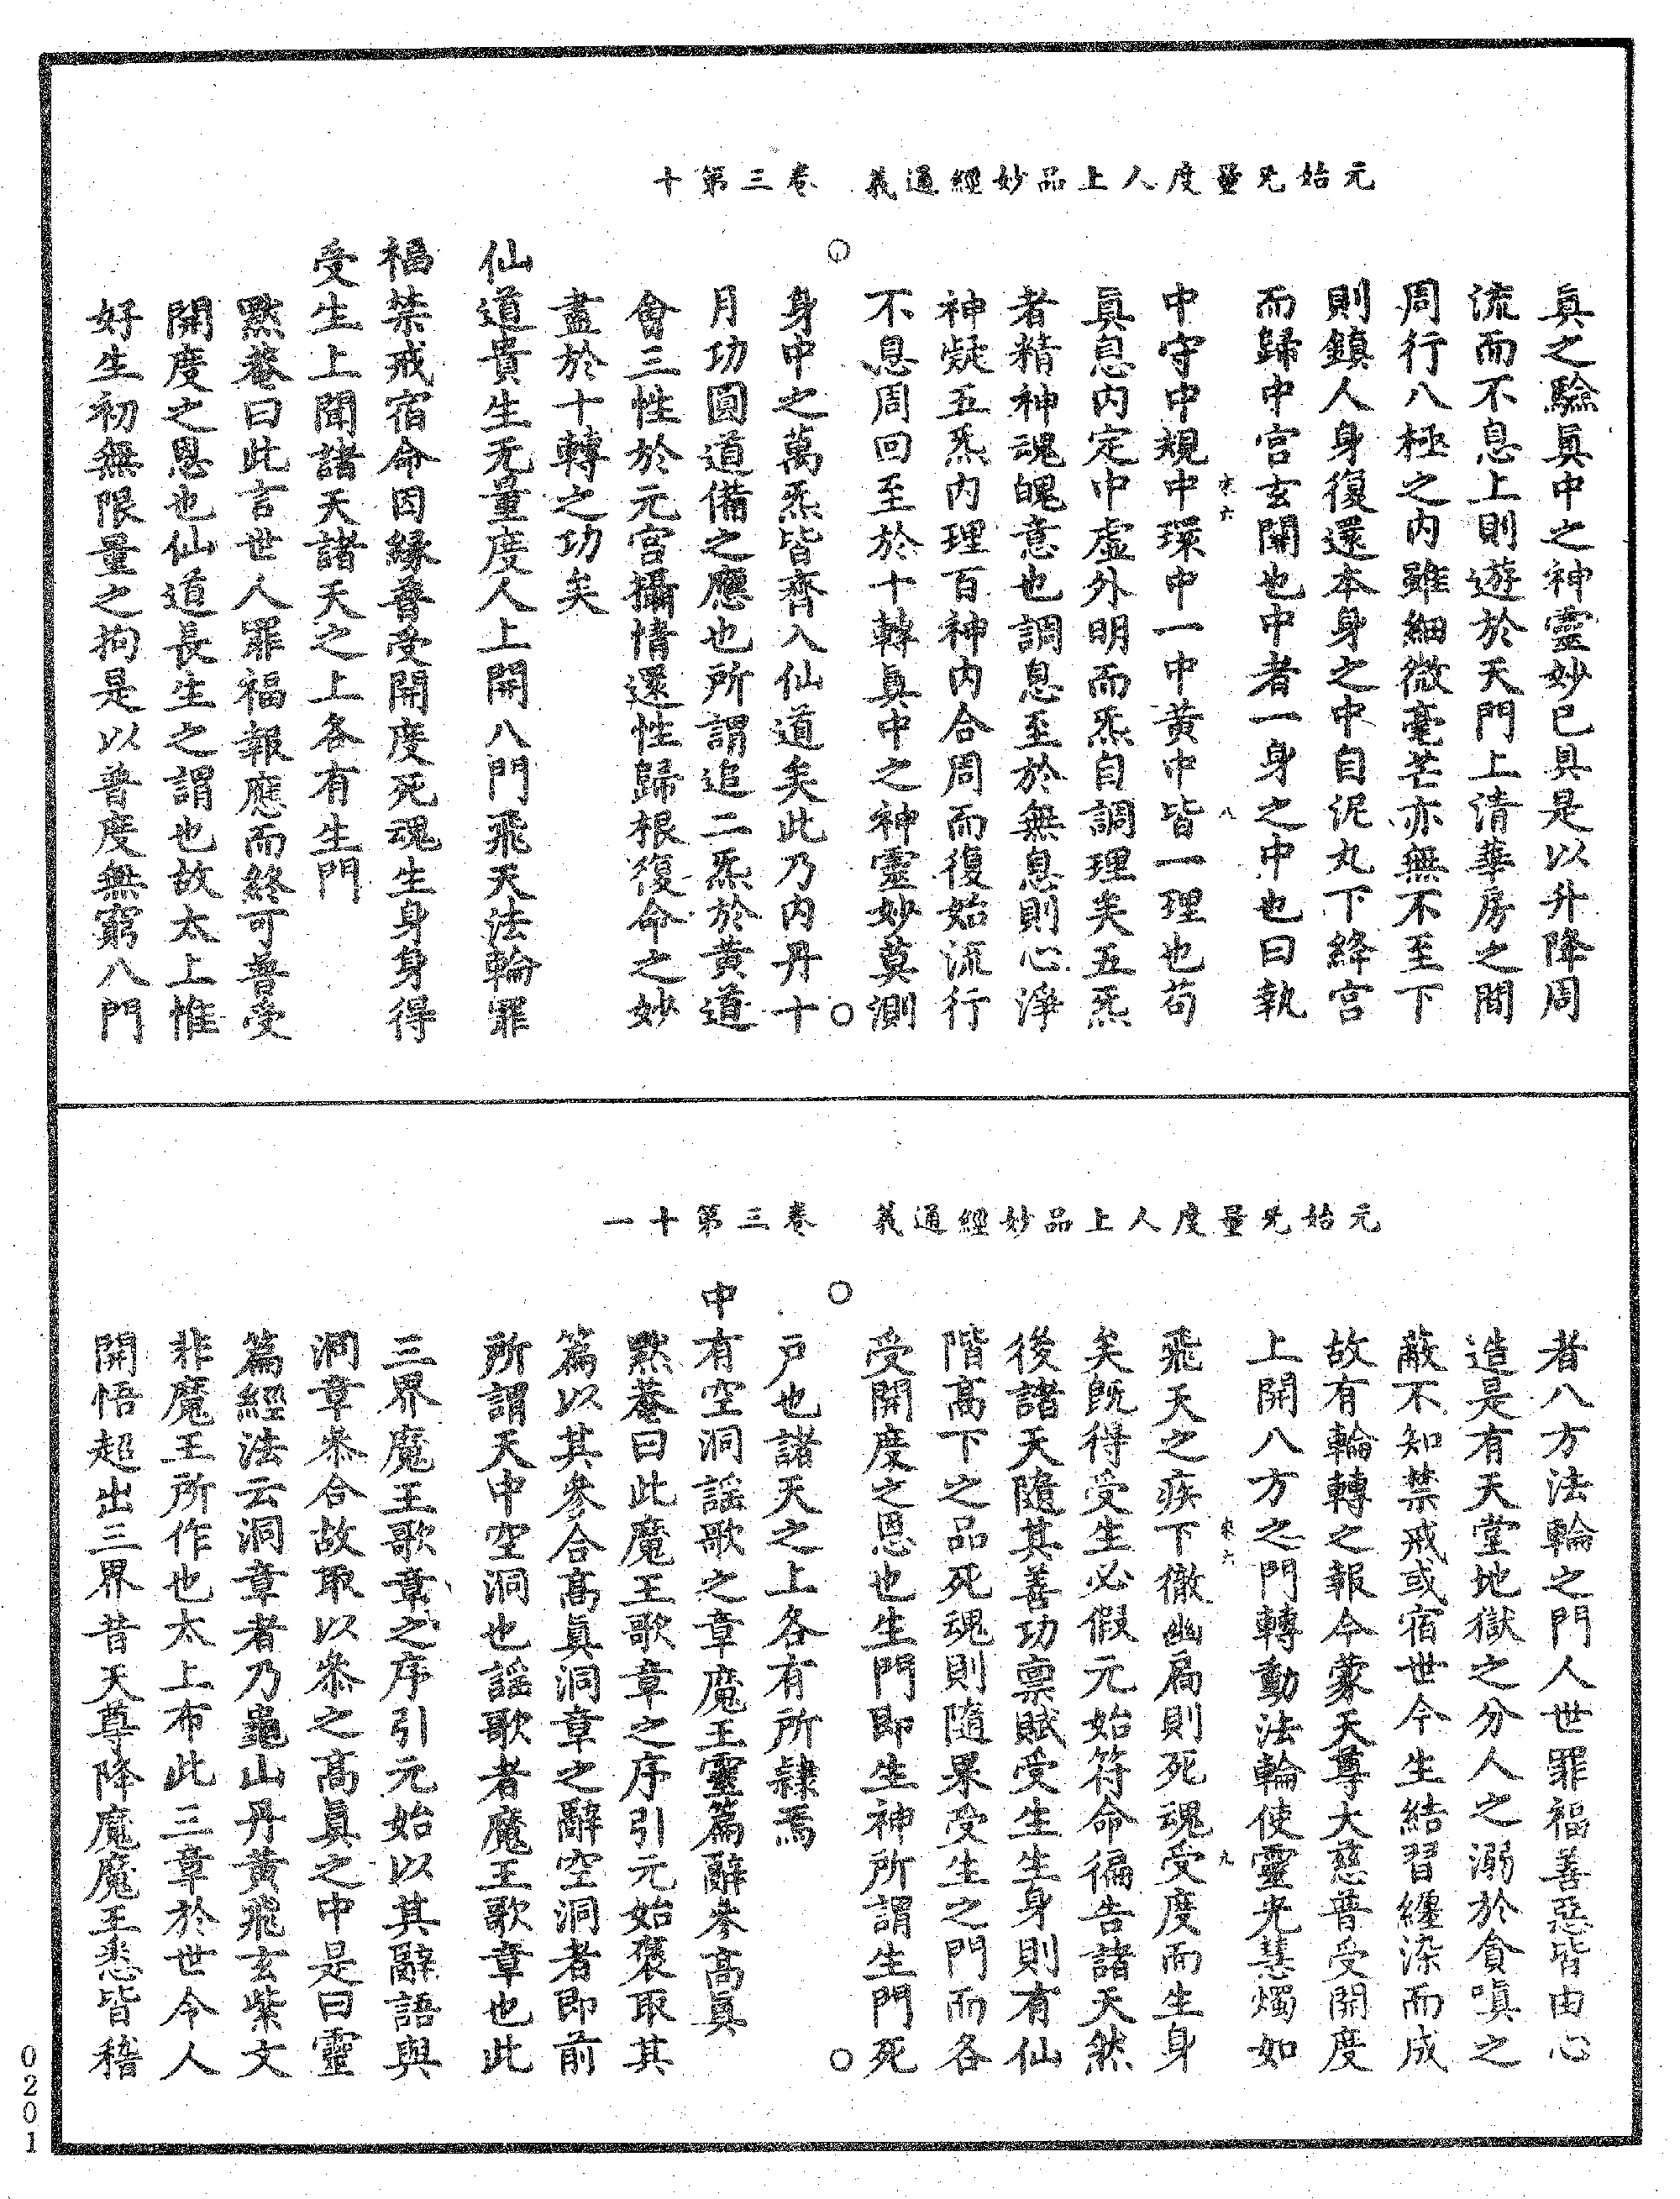 元始无量度人上品妙經通義　卷三第十
真之驗真中之神靈妙已具是以升降周
流而不息上則遊於天門上清華房之間
周行八極之内雖細微毫芒亦無不至下
則鎮人身復還本身之中自泥丸下絳宮
而歸中宮玄關也中者一身之中也曰執
中守中規中環中一中黃中皆一理也苟
真息内定中虛外明而炁自調理矣五炁
者精神魂魄意也調息至於無息則心淨
神凝五炁内理百神内合周而復始流行
不息周回至於十轉真中之神靈妙莫測
身中之萬炁皆齊入仙道矣此乃内丹十
月功圓道備之應也所謂追二炁於黃道
會三性於元宮攝情還性歸根復命之妙
盡於十轉之功矣
仙道貴生无量度人上開八門飛天法輪罪
福禁戒宿命因緣普受開度死魂生身身得
受生上聞諸天諸天之上各有生門
黙菴曰此言世人罪福報應而終可普受
開度之恩也仙道長生之謂也故太上惟
好生初無限量之拘是以普度無窮八門
元始无量度人上品妙經通義　卷三第十一
者八方法輪之門人世罪福善惡皆由心
造是有天堂地獄之分人之溺於貪嗔之
蔽不知禁戒或宿世今生結習纏染而成
故有輪轉之報今蒙天尊大慈普受開度
上開八方之門轉動法輪使靈光慧燭如
飛天之疾下徹幽扃則死魂受度而生身
矣既得受生必假元始符命徧告諸天然
後諸天隨其善功禀賦受生生身則有仙
階高下之品死魂則隨果受生之門而各
受開度之恩也生門即生神所謂生門死
戶也諸天之上各有所隸焉
中有空洞謠歌之章魔王靈篇辭參高真
黙菴曰此魔王歌章之序引元始褒取其
篇以其參合高真洞章之辭空洞者即前
所謂天中空洞也謠歌者魔王歌章也此
三界魔王歌章之序引元始以其辭語與
洞章叅合故取以叅之高真之中是曰靈
篇經法云洞章者乃龜山丹黃飛玄紫文
非魔王所作也太上布此三章於世令人
開悟超出三界昔天尊降魔魔王悉皆稽
0201